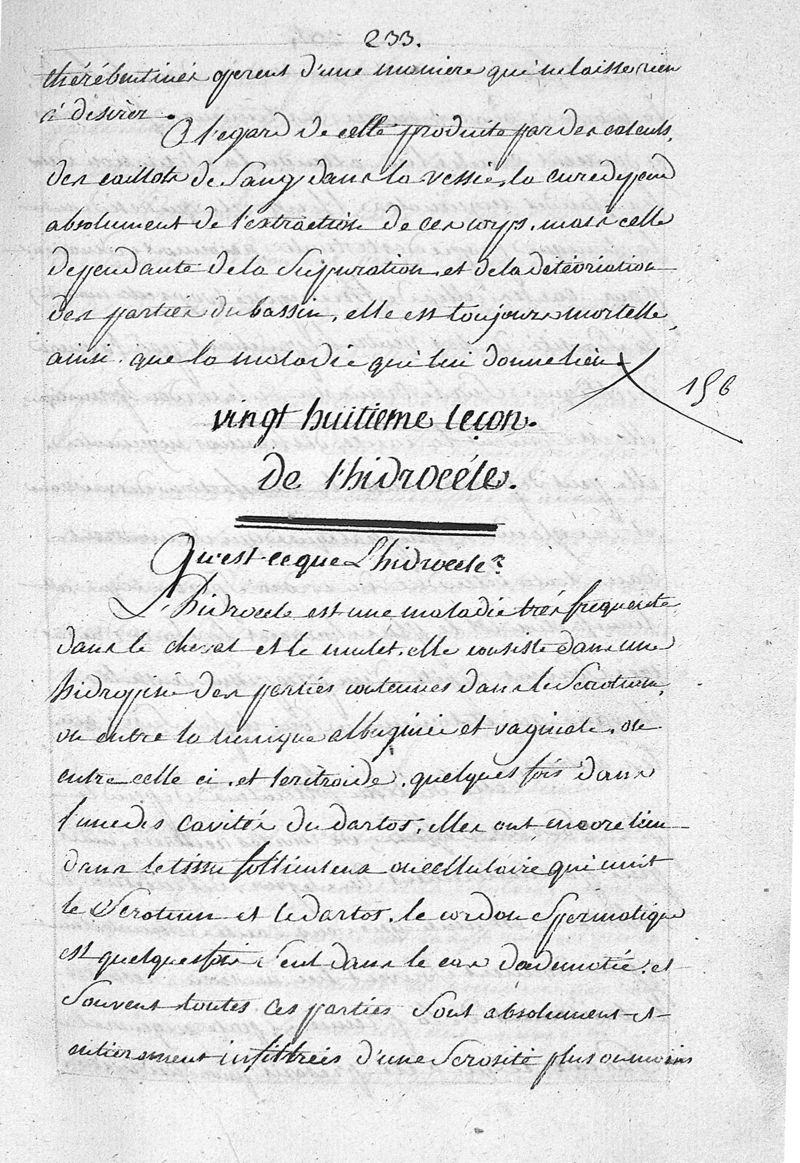 233.
thérébentines operent d'une maniere qui ne laisse rien
a desirer.
A l'egard de celle produite par des calculs,
des caillots de Sang dans la vessie, la cure depend
absolument de l'extraction de ces corps, mais celle
dependante de la Supuration, et de la détérioration
des parties du bassin, elle est toujours mortelle,
ainsi que la maladie qui lui donne lieu
156
vingt huitieme leçon.
de l'hidrocéle.
Qu'est-ce que L'hidrocele?
L'hidrocele est une maladie très frequente
dans le cheval et le mulet, elle consiste dans une
hidropisie des parties contenues dans le Scrotum,
ou entre la tunique albuginée et vaginale, ou
entre celle ci, et leritroide, quelques fois dans
l'une des cavités du dartos, elles ont encore lieu
dans le tissu folliculeux ou cellulaire qui unit
le Scrotum et le dartos, le cordon Spermatique
est quelques fois Seul dans le cas et
Souvent toutes ces parties Sont absolument et
entierement infiltrées d'une Serosité plus ou moins